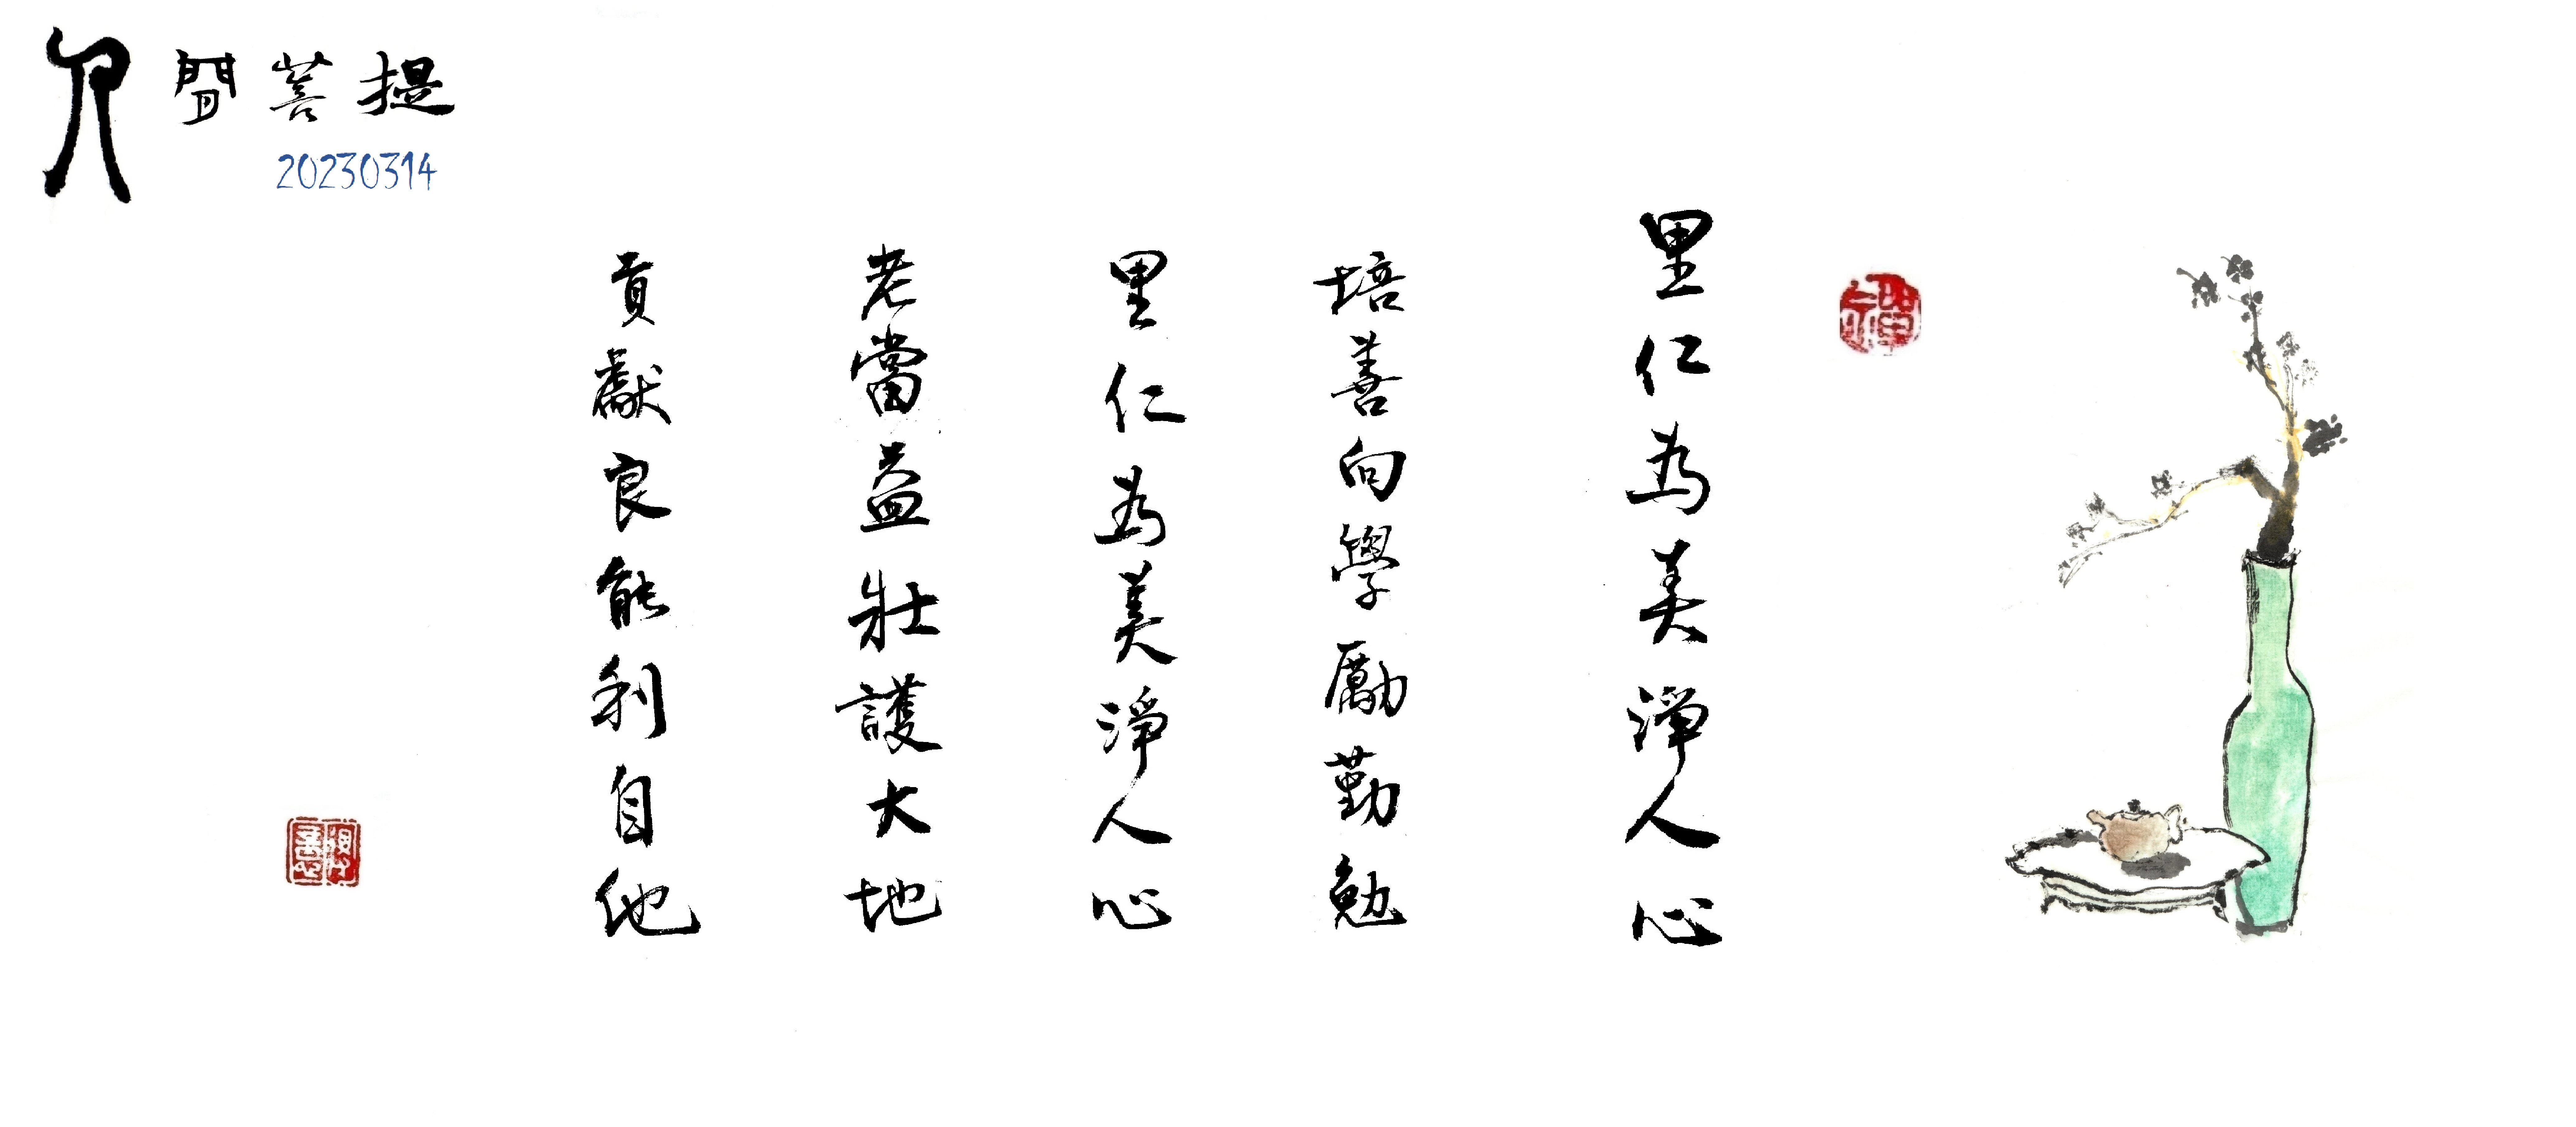 人間菩提
20230314
里仁為美淨人心
培善向學勵勤勉
里仁為美淨人心
老當益壯護大地
貢獻良能利自他
禪